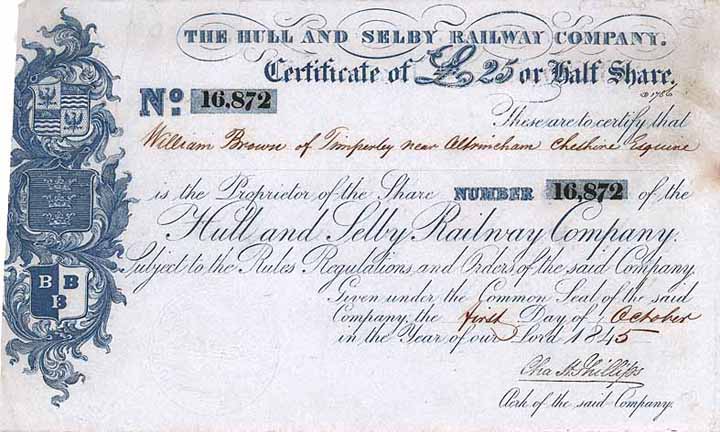 THE HULL AND SELBY RAILWAY COMPANY.
Certificate of £25 or Half Share.
No. 16,872
These are to certify that
William Brown of Timperley near Altrincham Cheshire Esquire
is the Proprietor of the Share NUMBER 16,872 of the
Hull and Selby Railway Company.
Subject to the Rules Regulations and Orders of the said Company.
Given under the Common Seal of the said
Company, the first Day of October
in the Year of our Lord 1845
Cha. H. Phillips
Clerk of the said Company.
B B
B